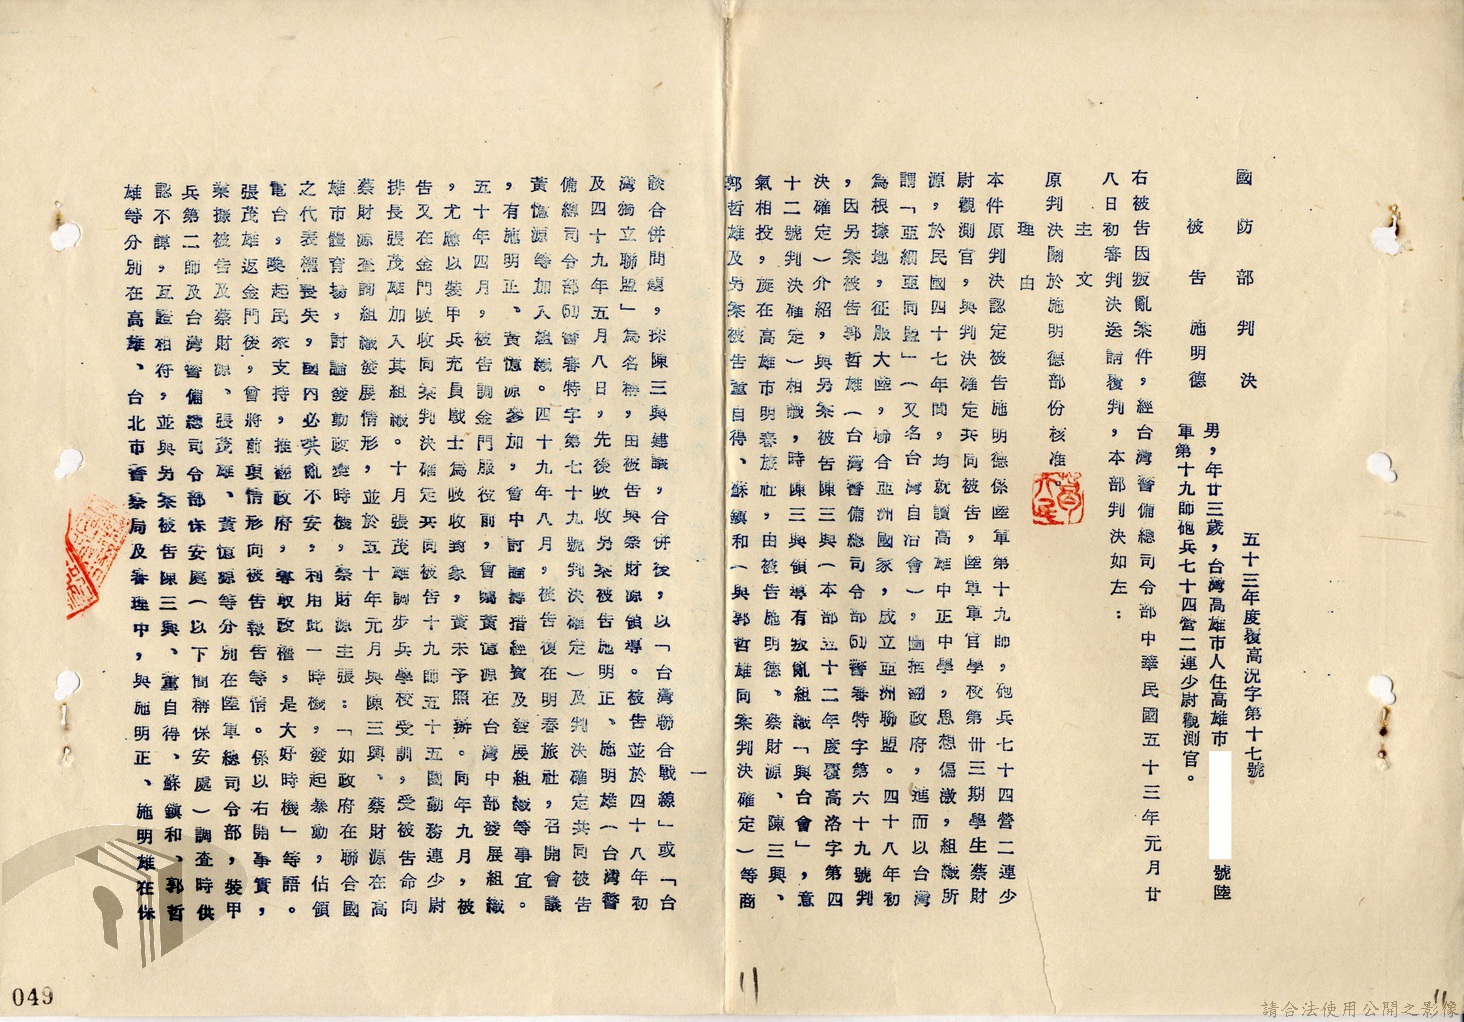 國防部判決
五十三年度覆高況字第十七號
被告施明德
男，年廿三歲，台灣高雄市人住高雄市
號陸
軍第十九師砲兵七十四營二連少尉觀測官。
右被告因叛亂案件，經台灣警備總司令部中華民國五十三年元月廿
八日初審判決送請覆判，本部判決如左：
主文
原判決關於施明德部份核准。
理由
本件原判決認定被告施明德係陸軍第十九師，砲兵七十四營二連少
尉觀測官，與判決確定共同被告，陸軍軍官學校第卅三期學生蔡財
源，於民國四十七年間，均就讀高雄中正中學，思想偏激，組織所
謂「亞細亞同盟」（又名台灣自治會），圖推翻政府，進而以台灣
為根據地，征服大陸，聯合亞洲國家，成立亞洲聯盟。四十八年初
，因另案被告郭哲雄（台灣警備總司令部(51)警審特字第六十九號判
決確定）介紹，與另案被告陳三興（本部五十二年度覆高洛字第四
十二號判決確定）相識，時陳三興領導有叛亂組織「興台會」，意
氣相投，旋在高雄市明春旅社，由被告施明德、蔡財源、陳三興、
郭哲雄及另案被告董自得、蘇鎮和（與郭哲雄同案判決確定）等商
一
談合併問題，採陳三興建議，合併後，以「台灣聯合戰線」或「台
灣獨立聯盟」為名稱，由被告與蔡財源領導。被告並於四十八年初
及四十九年五月八日，先後吸收另案被告施明正、施明雄（台灣警
備總司令部(51)警審特字第七十九號判決確定）及判決確定共同被告
黃憶源等加入組織。四十九年八月，被告復在明春旅社，召開會議
，有施明正、黃憶源參加，會中討論籌措經費及發展組織等事宜。
五十年四月，被告調金門服役前，曾囑黃憶源在台灣中部發展組織
，尤應以裝甲兵充員戰士為吸收對象，黃未予照辦。同年九月，被
告又在金門吸收同案判決確定共同被告十九師五十五團勤務連少尉
排長張茂雄加入其組織。十月張茂雄調步兵學校受訓，受被告命向
蔡財源查詢組織發展情形，並於五十年元月與陳三興、蔡財源在高
雄市體育場，討論發動政變時機，蔡財源主張：「如政府在聯合國
之代表權喪失，國內必哄亂不安，利用此一時機，發起暴動，佔領
電台，喚起民眾支持，推翻政府，奪取政權，是大好時機」等語。
張茂雄返金門後，曾將前項情形向被告報告等情。係以右開事實，
業據被告及蔡財源、張茂雄、黃憶源等分別在陸軍總司令部，裝甲
兵第二師及台灣警備總司令部保安處（以下簡稱保安處）調查時供
認不諱，互證相符，並與另案被告陳三興、董自得、蘇鎮和、郭哲
雄等分別在高雄、台北市警察局及審理中，與施明正、施明雄在保
049
請合法使用公開之影像